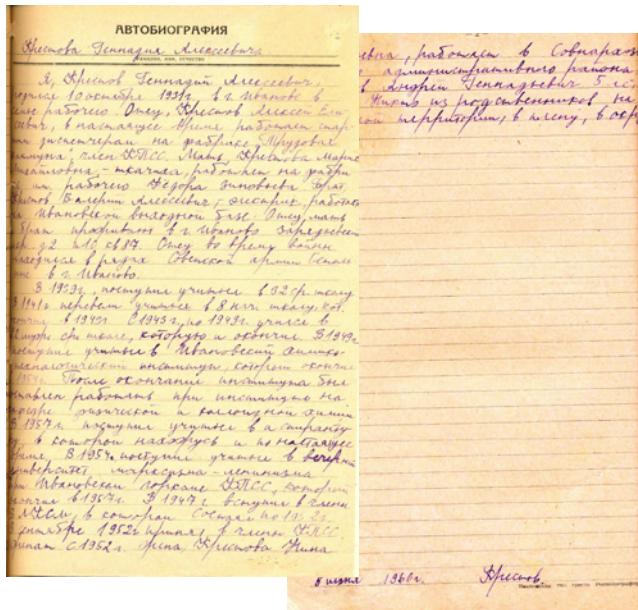 АВТОБИОГРАФИЯ
Крестова Геннадия Алексеевича
фамилия, имя, отчество
Я, Крестов Геннадий Алексеевич,
родился 10 октября 1931г. в г. Иванове в
рабочего. Отец, Крестов Алексей
в настоящее время работает
диспетчером на фабрике
член КПСС. Мать, Крестова Мария
ткачиха, работает на
им. рабочего Федора Зиновьева. Брат,
Крестов Валерий Алексеевич, электрик, работает
на Ивановской базе. Отец, мать
брат проживают в г. Иваново
д2 кв 87. Отец во время войны
находился в рядах Советской армии
в г. Иваново.
В 1939г. поступил учиться в 32 ср. школу
В 1941г. переведён учиться в 8 школу,
в 1943г. С 1943г. по 1949г. учился в
школе, которую и окончил. В 1949г
поступил учиться в Ивановский химико
технологический институт, который окончил
1954г. После окончания института был
оставлен работать при институте на
кафедре физической и коллоидной химии
В 1957г. поступил учиться в аспиранту
ру, в которой нахожусь и по настоящее
время. В 1954г. поступил учиться в вечерний
университет марксизма-ленинизма
при Ивановском горкоме КПСС, который
окончил в 1957г. В 1947г вступил в члены
ВЛКСМ, в котором состоял по
сентябре 1952г принят в члены КПСС
С 1952г. Жена, Крестова Нина
работает в Совнархозе
административного района
Андрей Геннадиевич 5 лет
Никто из родственников на
территории, в плену, в
5 июня 1960г. Крестов.